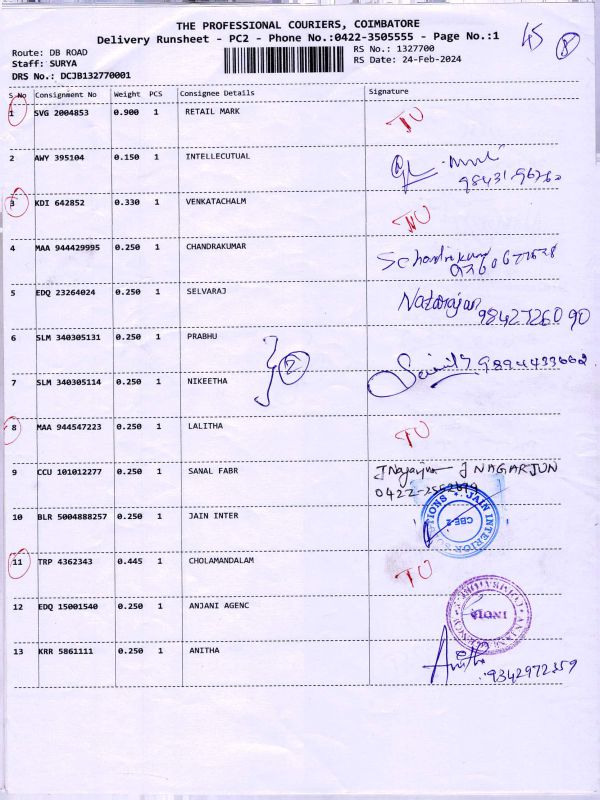 THE PROFESSIONAL COURIERS, COIMBATORE
Delivery Runsheet - PC2 - Phone No.:0422-3505555 - Page No.:1
45 8
Route: DB ROAD RS No.: 1327700
Staff: SURYA RS Date: 24-Feb-2024
DRS No.: DCJB132770001
S.No Consignment No Weight PCS Consignee Details Signature
1 SVG 2004853 0.900 1 RETAIL MARK TU
2 AWY 395104 0.150 1 INTELLECUTUAL
3 KDI 642852 0.330 1 VENKATACHALM
4 MAA 944429995 0.250 1 CHANDRAKUMAR
5 EDQ 23264024 0.250 1 SELVARAJ Natarajan
9842726090
6 SLM 340305131 0.250 1 PRABHU
2 9894433662
7 SLM 340305114 0.250 1 NIKEETHA
8 MAA 944547223 0.250 1 LALITHA TU
9 CCU 101012277 0.250 1 SANAL FABR J Nagarjun J NAGARJUN
10 BLR 5004888257 0.250 1 JAIN INTER JAIN INTERIOR CBE-2
11 TRP 4362343 0.445 1 CHOLAMANDALAM TU
12 EDQ 15001540 0.250 1 ANJANI AGENC INDIA
13 KRR 5861111 0.250 1 ANITHA Anitha
9342972359